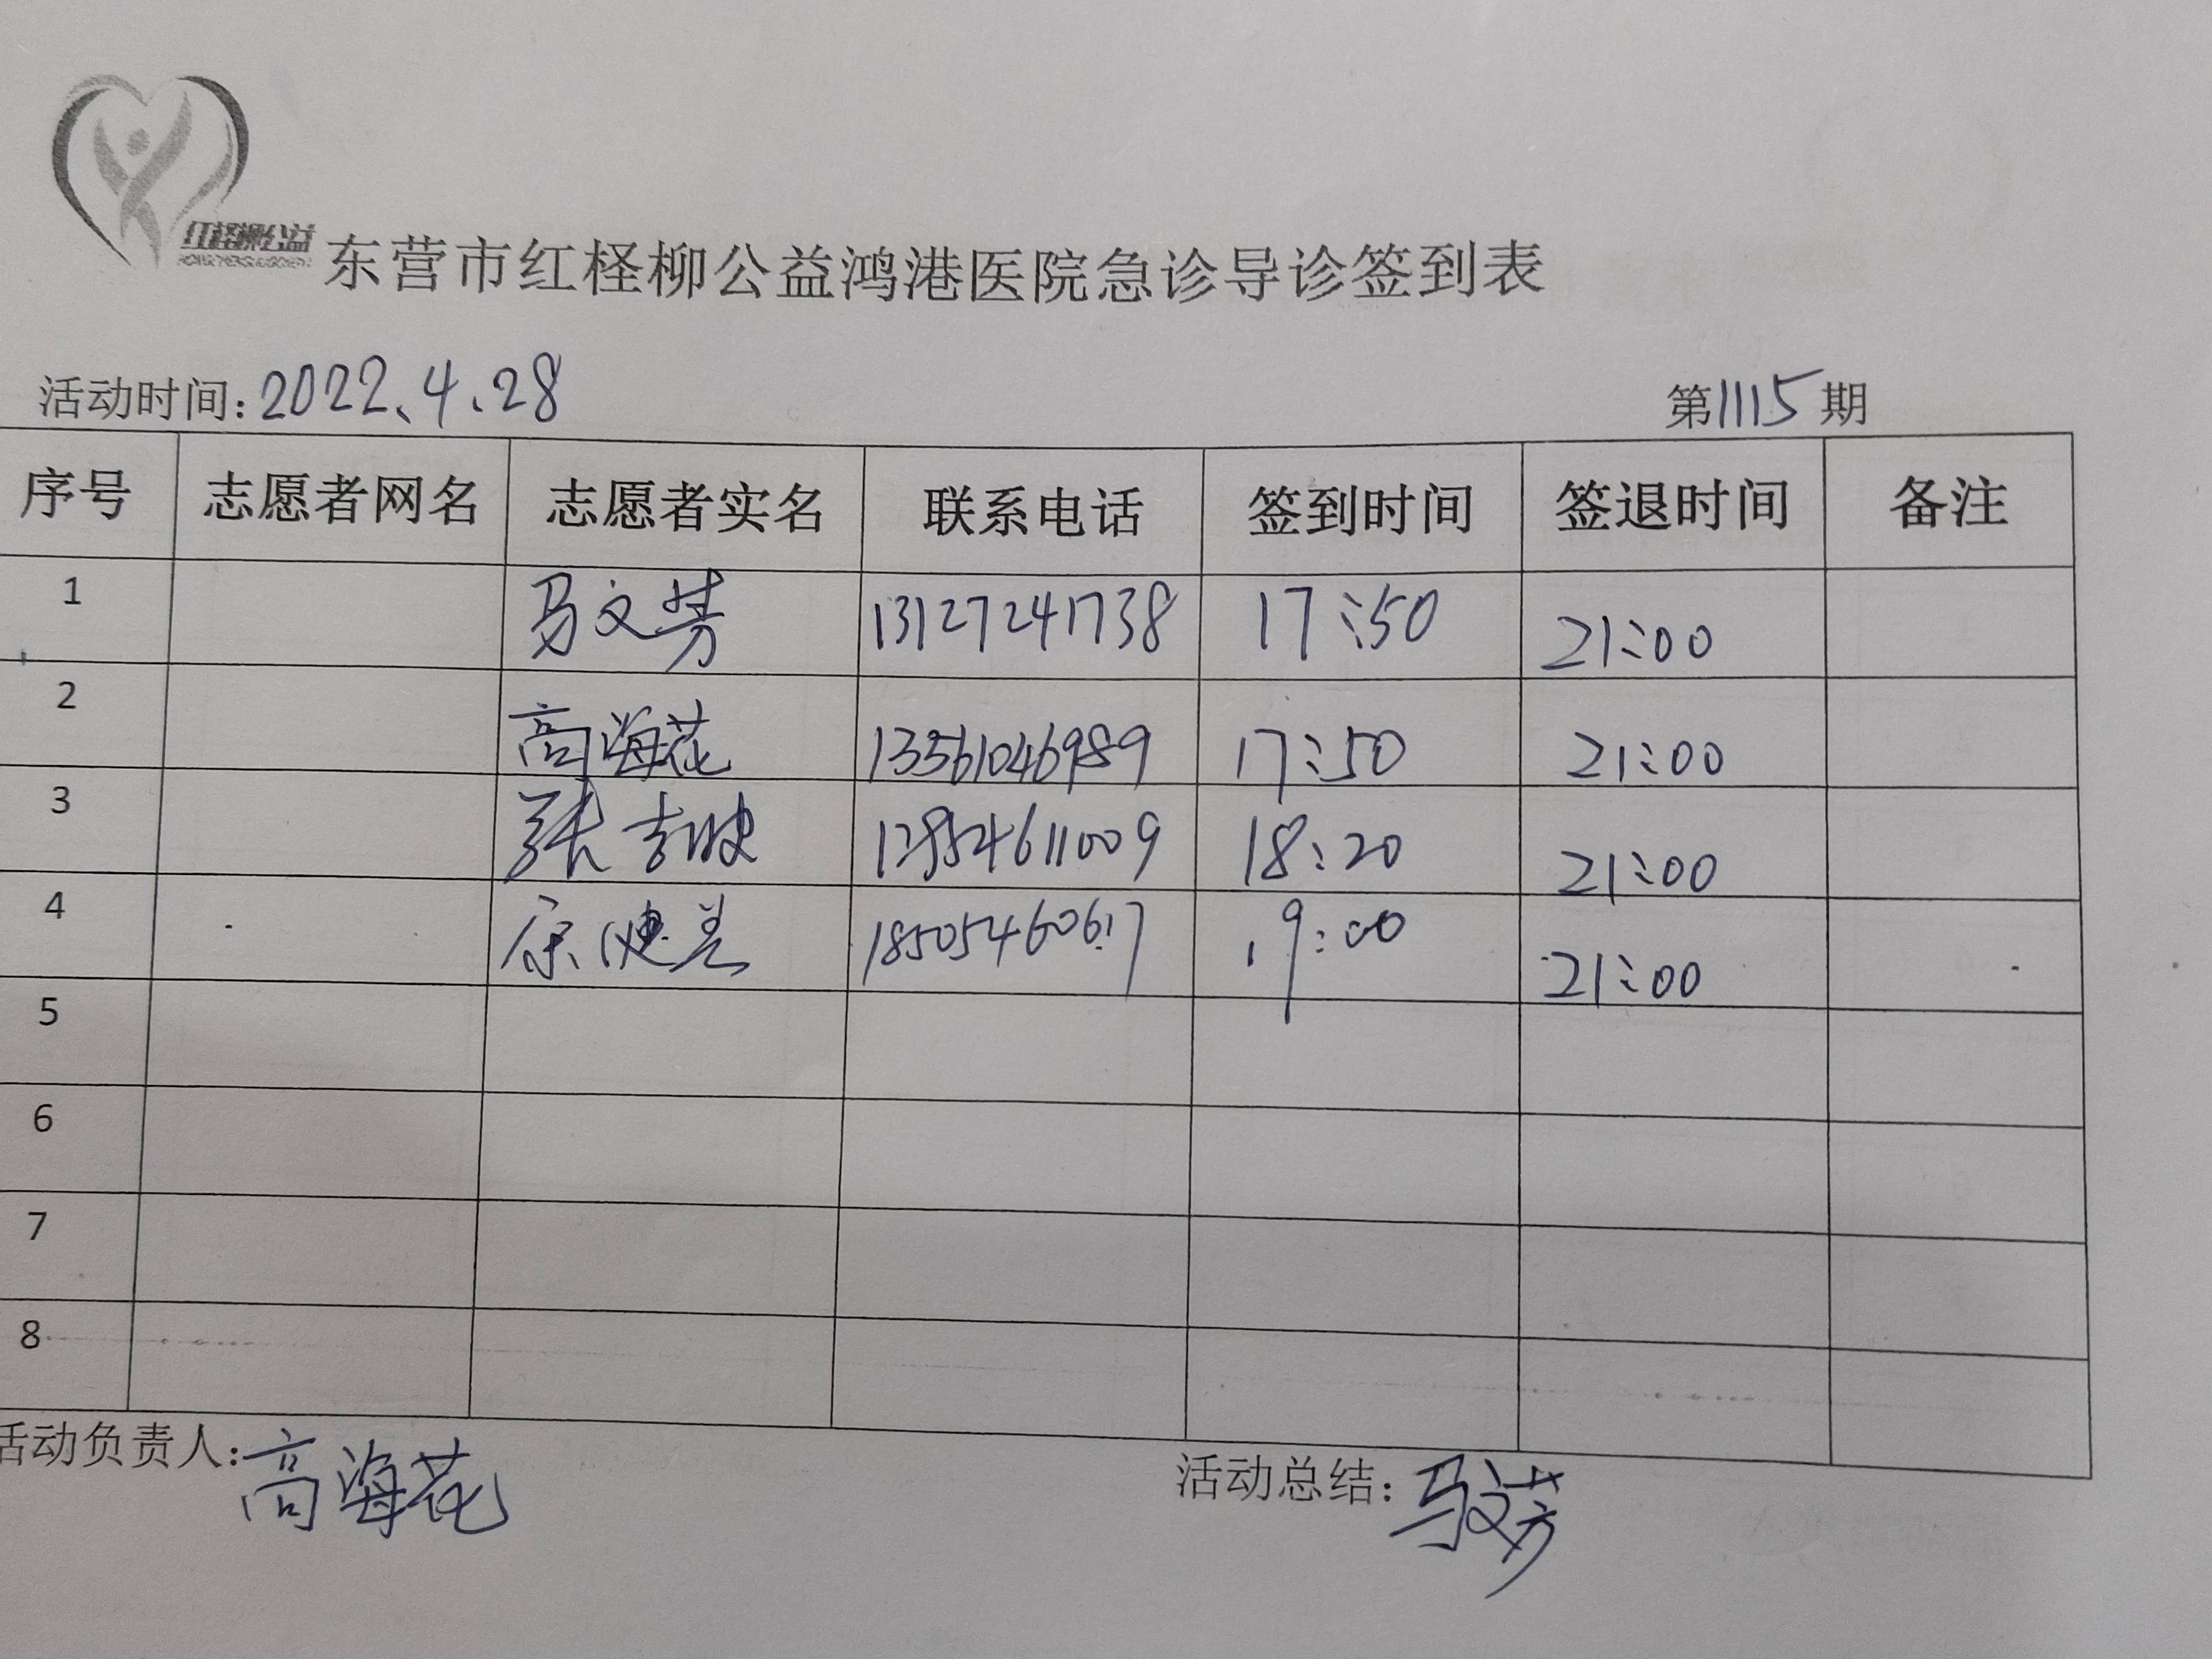 红柽柳公益
东营市红柽柳公益鸿港医院急诊导诊签到表
活动时间：2022、4、28 第1115期
序号 志愿者网名 志愿者实名 联系电话 签到时间 签退时间 备注
1 马文芳 13127241738 17:50 21:00
2 高海花 13561046989 17:50 21:00
3 张 18:20 21:00
4 18505460617 19:00 21:00
5
6
7
8
活动负责人：高海花 活动总结：马文芳